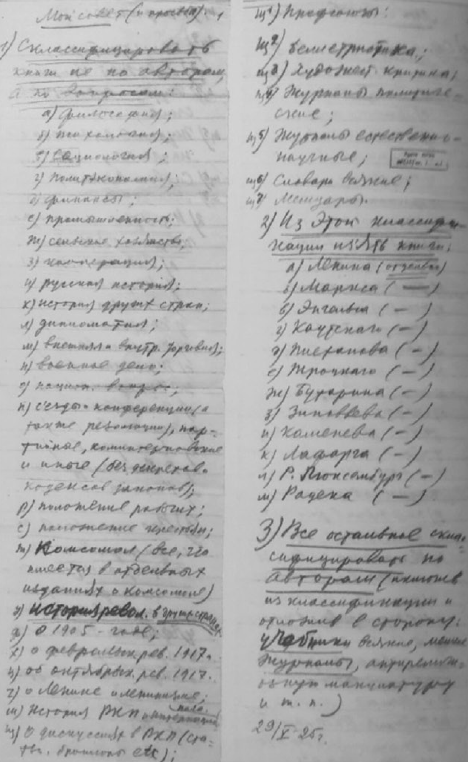 Мой совет (и просьба):
1) Склассифицировать
книги не по авторам
а по вопросам:
а) философия;
б) психология;
в) социология;
г) политэкономия;
д) финансы;
е) промышленность;
ж) сельское хозяйство;
з) кооперация;
и) русская история;
к) история других стран;
л) дипломатия;
м) внешняя и внутр. торговля;
н) военное дело;
о) национ. вопрос;
п) съезды и конференции (а
также резолюции), пар-
тийные, коминтерновские
и иные (без декретов и
кодексов законов);
р) положение рабочих;
с) положение крестьян;
т) Комсомол (все, что
имеется в отдельных
изданиях о комсомоле)
у) история револ. в других странах;
ф) о 1905 годе;
х) о февральск. рев. 1917 г.
ц) об октябрьск. рев. 1917 г.
ч) о Ленине и ленинизме;
ш) История РКП и интернационала;
щ) О дискуссиях в РКП (ста-
тьи, брошюры etc);
щ1) Профсоюзы:
щ2) беллетристика;
щ3) Художест. критика;
щ4) Журналы политиче-
ские;
щ5) Журналы естественно-
научные;
щ6) Словари всякие;
щ7) Мемуары.
2) Из этой классифи-
кации изъять книги:
а) Ленина (отдельно)
б) Маркса ( — )
в) Энгельса ( — )
г) Каутского ( — )
д) Плеханова ( — )
е) Троцкого ( — )
ж) Бухарина ( — )
з) Зиновьева ( — )
и) Каменева ( — )
к) Лафарга ( — )
л) Р. Люксембург ( — )
м) Радека ( — )
3) Все остальное скла-
сифицировать по
авторам (исключив
из классификации и
отложив в сторону:
учебники всякие, мелкие
журналы, антирелиги-
озную макулатуру
и т. п.)
29/V-25 г.